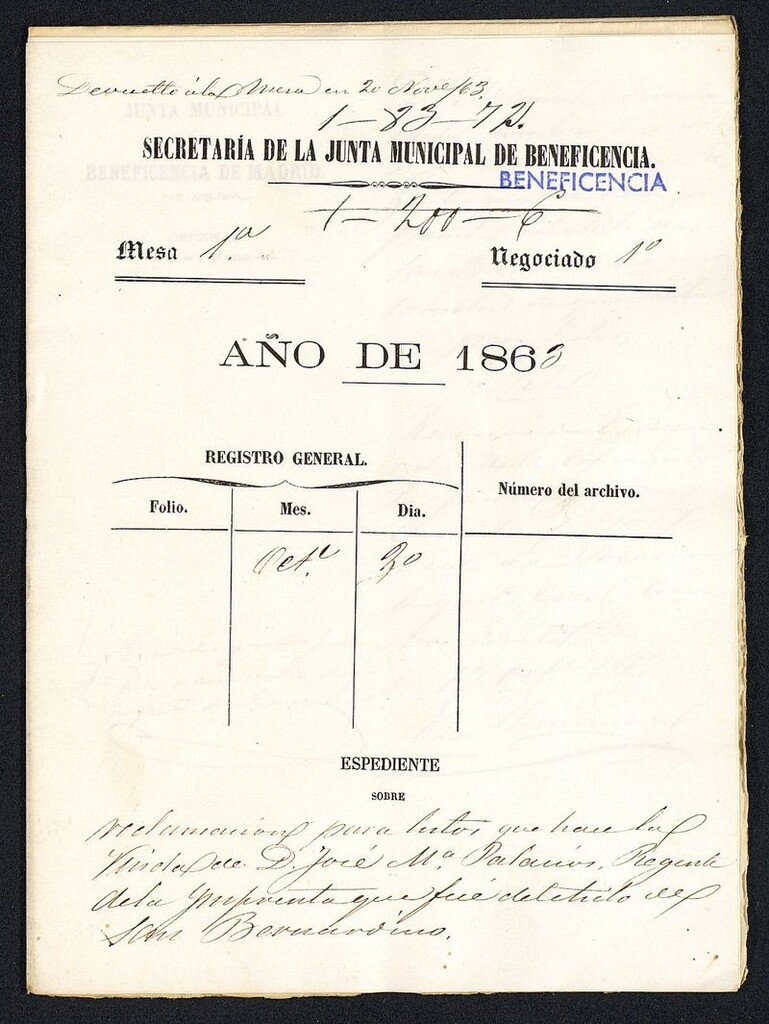 Devuelto á la Mesa en 20 Nove/63.
1-83-72.
SECRETARÍA DE LA JUNTA MUNICIPAL DE BENEFICENCIA.
BENEFICENCIA
1-200-6
Mesa 1.ª
Negociado 1º
AÑO DE 1863
REGISTRO GENERAL.
Número del archivo.
Folio. Mes. Dia.
Oct.e 20
ESPEDIENTE
SOBRE
reclamacion para lutos que hace la
Viuda de D. José Mª Palacios, Regente
de la Ymprenta que fué del
San Bernardino.
JUNTA MUNICIPAL
BENEFICENCIA DE MADRID.